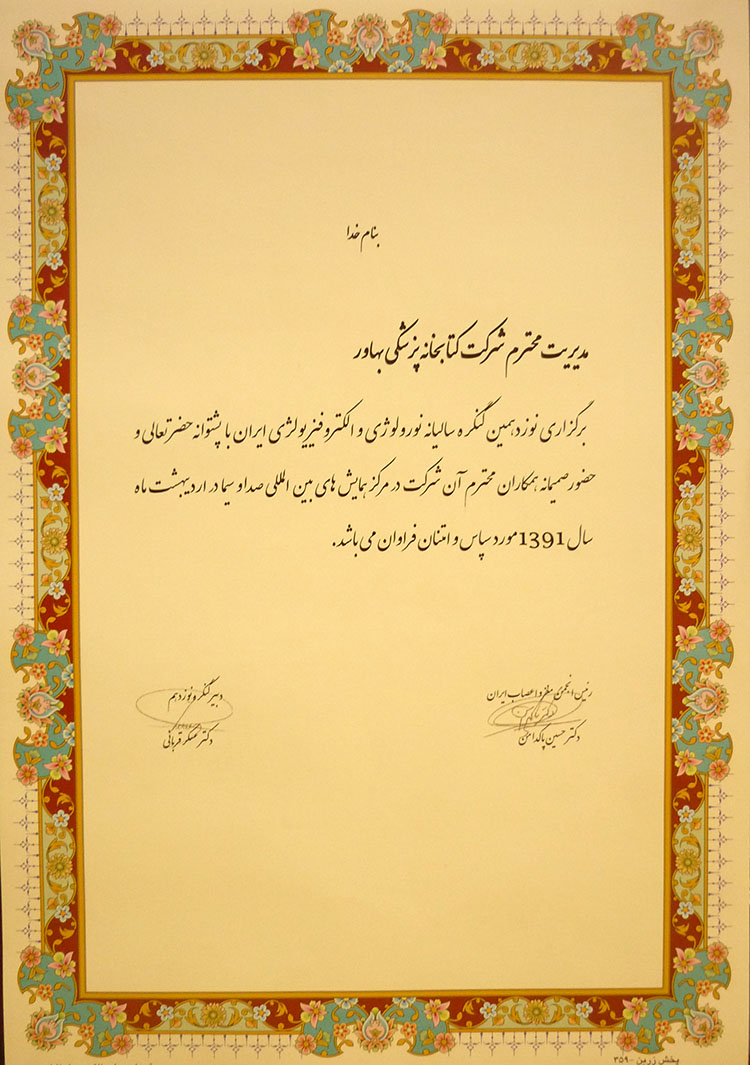 بنام خدا
مدیریت محترم شرکت کتابخانه پزشکی بهاور
برگزاری نوزدهمین کنگره سالیانه نورولوژی و الکتروفیزیولژی ایران با پشتوانه حضرتعالی و
حضور صمیمانه همکاران محترم آن شرکت در مرکز همایش های بین المللی صدا و سیما در اردیبهشت ماه
سال 1391 مورد سپاس و امتنان فراوان می باشد.
رئیس انجمن مغز و اعصاب ایران
دکتر حسین پاکدامن
دبیر کنگره نوزدهم
دکتر عسکر قربانی
پخش زرین - ۳۵۹